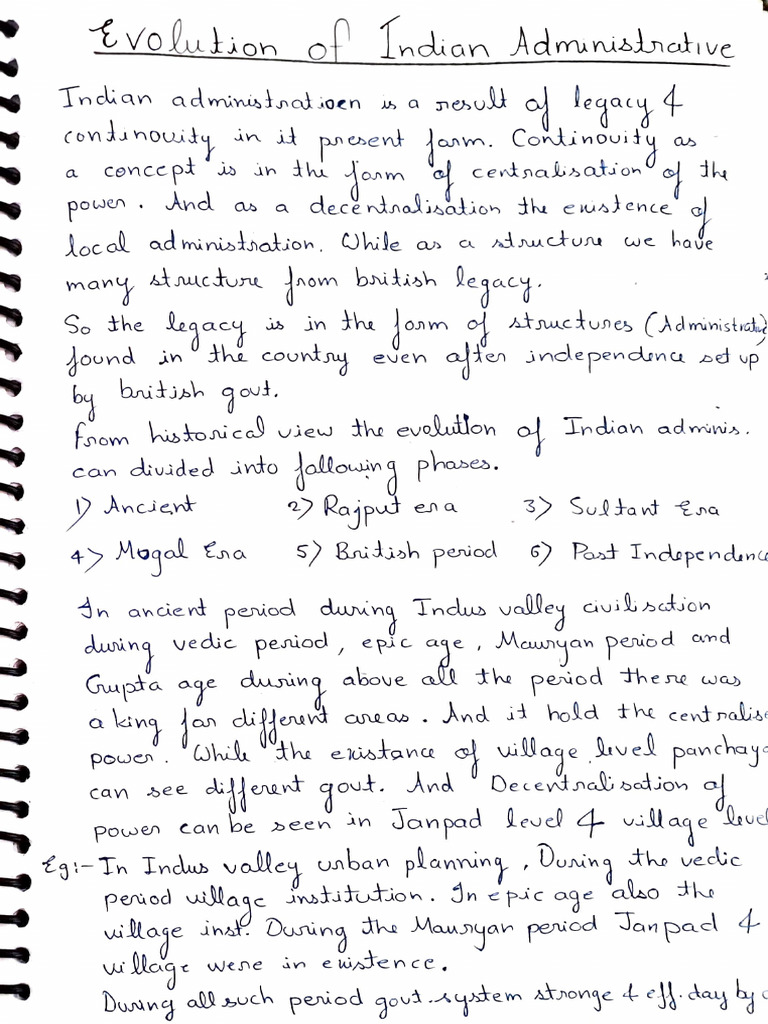 Evolution of Indian Administrative
Indian administratioen is a result of legacy &
continouity in it present form. Continouity as
a concept is in the form of centralisation of the
power. And as a decentralisation the existence of
local administration. While as a structure we have
many structure from british legacy.
So the legacy is in the form of structures (Administrativ
found in the country even after independence set up
by british govt.
From historical view the evolution of Indian adminis.
can divided into following phases.
1) Ancient 2) Rajput era 3) Sultant Era
4) Mogal Era 5) British period 6) Post Independence
In ancient period during Indus valley civilisation
during vedic period, epic age, Mauryan period and
Gupta age during above all the period there was
a king for different areas. And it hold the centralise
power. While the existance of village level panchaya
can see different govt. And Decentralisation of
power can be seen in Janpad level & village level
Eg:- In Indus valley urban planning, During the vedic
period village institution. In epic age also the
village inst. During the Mauryan period Janpad &
village were in existence.
During all such period govt. system stronge & eff. day by